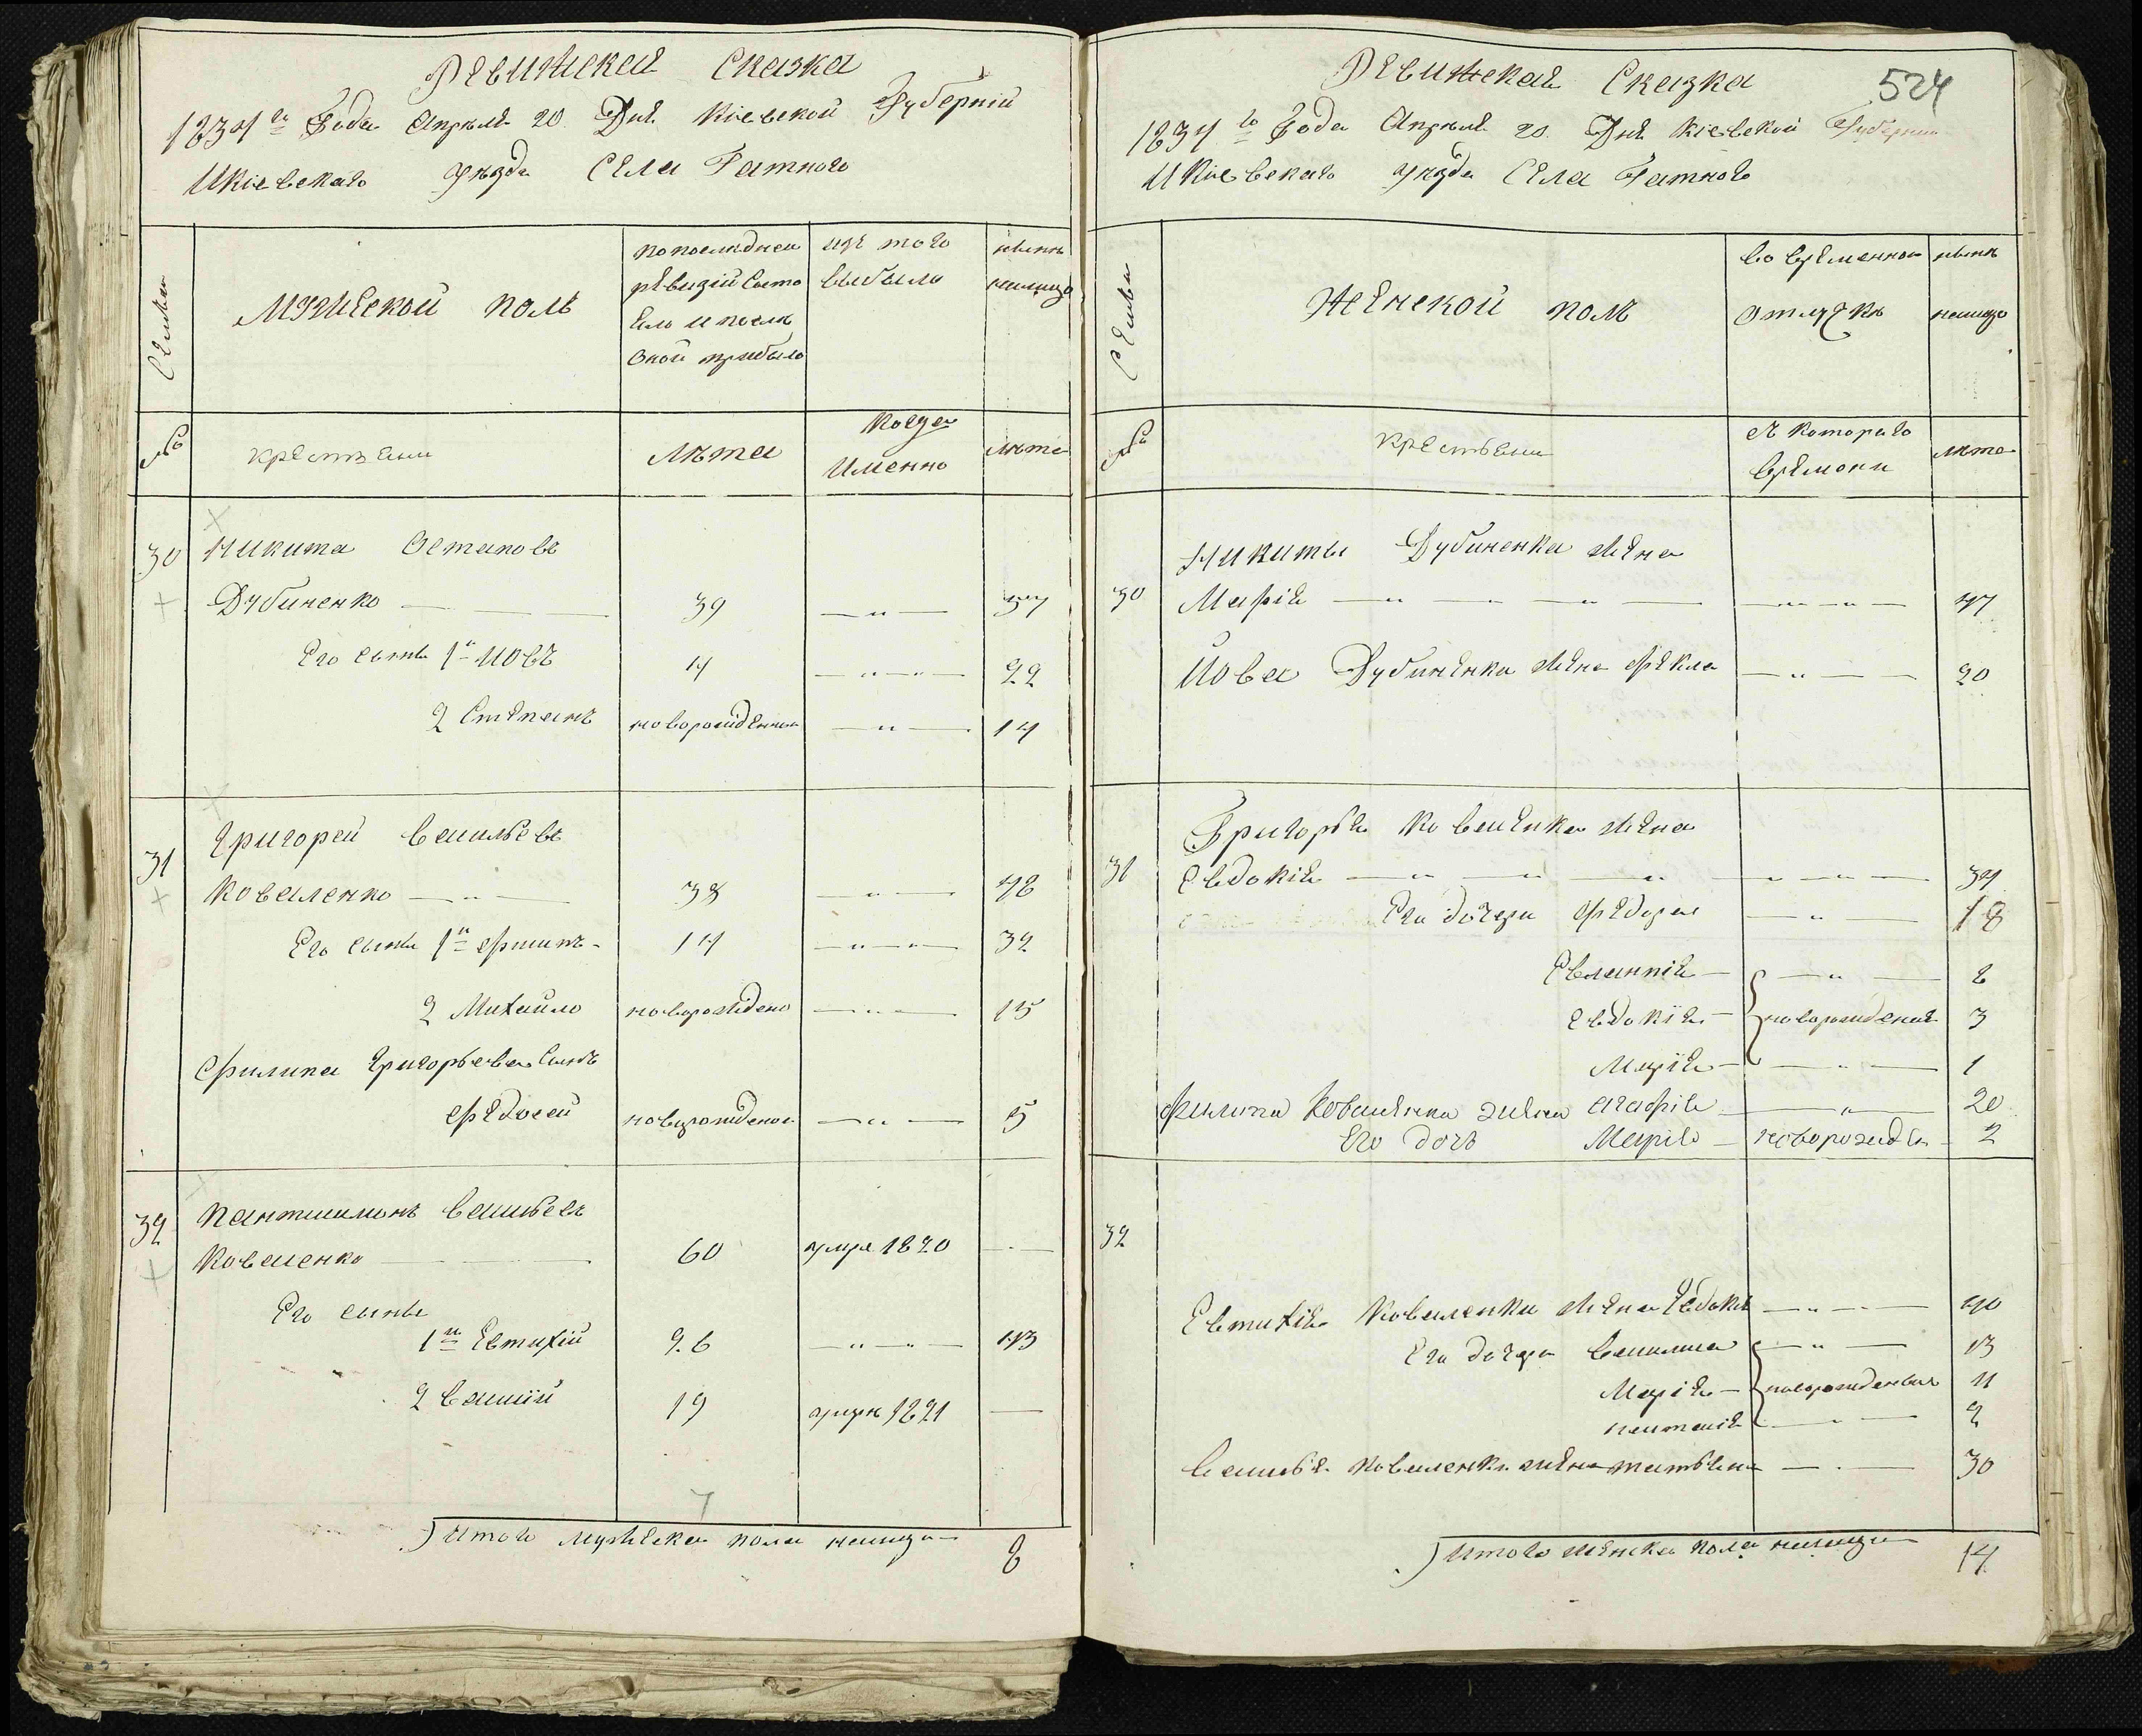 Ревижская Сказка
1834го Года Апреля 20 Дня Кіевской Губерніи
И Кіевскаго уезда Села Гатного
Семьи
Мужеской полъ
по последней
ревизіи состо
ело и после
оной прибыло
изъ того
выбыло
ныне
налицо
№
крестьяни
лета
когда
именно
лета
30 Никита Остаповъ
Дубиненко — 39 — " — 57
Его сыны 1й Иовъ 14 — " — " — 22
2 Степанъ новорожденни — " — 14
31 Григорей Васильевъ
Коваленко — " — 38 — " —
Его сыны 1й Филипъ 14 — " — " — 32
2 Михайло новорождено — " — 15
Филипа Григорьева сынъ
Федосей новорожденой — " — 5
32 Пантилимонъ Васильевъ
Коваленко — 60 умре 1820 —
Его сыны
1й Евтихій 26 — " — " —
2 Василій 19 умре 1821 —
7
Итого мужеска пола налицо 8
Ревижская Сказка
524
1834го Года Апреля 20 Дня Кіевской Губерніи
И Кіевскаго уезда Села Гатного
Семьи
Женской полъ
во временной
отлучке
ныне
налицо
№
крестьяни
съ котораго
времени
лета
Никиты Дубиненка жена
30 Марія — " — " — " — " — 47
Иова Дубиненка жена Фекла — " — 20
Григорья Коваленка жена
31 Евдокія — " — " — " — " — 34
Его дочери Федора — " — 18
Евлампія — " — 8
Евдокія — новорожденые 3
Марія — " — 1
Филипа Коваленка жена Агафія — " — 20
Его дочь Марія — новорожден — 2
32
Евтихія Коваленка жена Евдокія — " — 40
Его дочери Василиса — " — 13
Марія — новорожденыя 11
— " — 2
Василья Коваленка жена татьяна — 30
Итого женска пола налицо 14